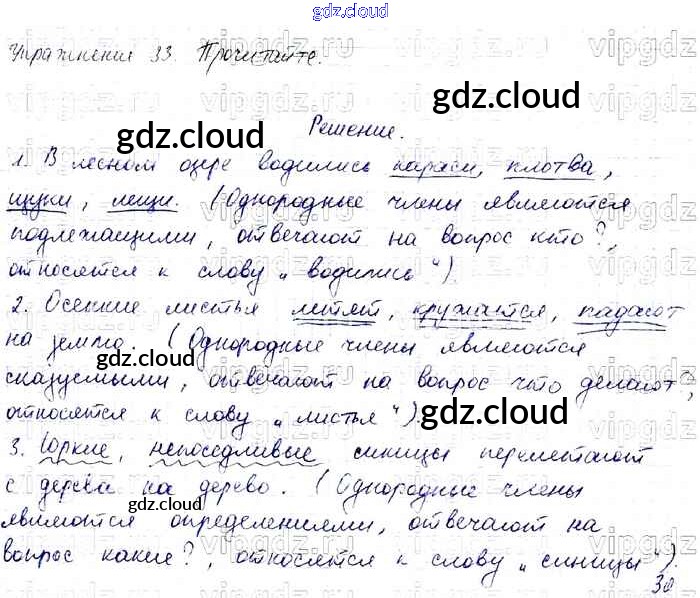 gdz.cloud
Упражнение 33. Прочитайте.
gdz.cloud
gdz.cloud
Решение.
1. В лесном озере водились караси, плотва,
щуки, лещи. (Однородные члены являются
подлежащими, отвечают на вопрос кто?,
относятся к слову „водились“)
2. Осенние листья летят, кружатся, падают
на землю. (Однородные члены являются
gdz.cloud
сказуемыми, отвечают на вопрос что делают?,
относятся к слову „листья“).
gdz.cloud
3. Юркие, непоседливые синицы перелетают
с дерева на дерево. (Однородные члены
gdz.cloud
являются определениями, отвечают на
вопрос какие?, относятся к слову „синицы“).
gdz.cloud